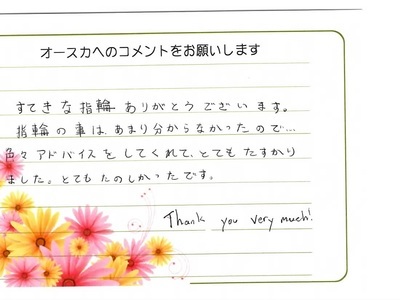 オースカへのコメントをお願いします
すてきな指輪ありがとうございます。
指輪の事は、あまり分からなかったので…
色々アドバイスをしてくれて、とてもたすかり
ました。とてもたのしかったです。
Thank you very much!